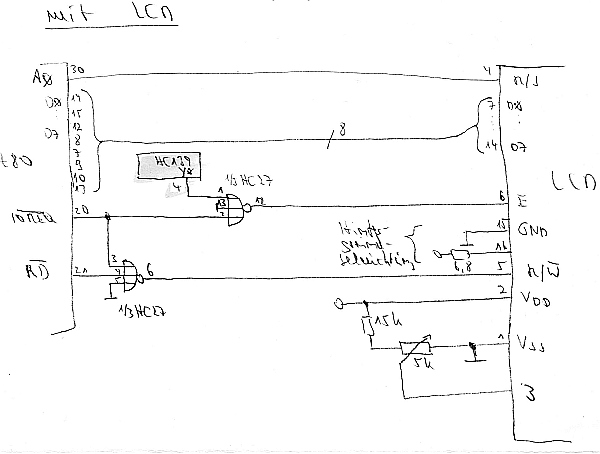 mit LCD
A0 30 4 R/S
D0 14 7 D0
15
12
D7 8 8 14 D7
7
9
10
13
Z80 LCD
HC139
Y0
4
1/3 HC27
1
13
2
12 6 E
IOREQ 20
15 GND
Hinter-
grund-
beleuchtung
16
6,8
3
RD 21 4 6 5 R/W
5
1/3 HC27
2 VDD
15k
1 VSS
5k
3